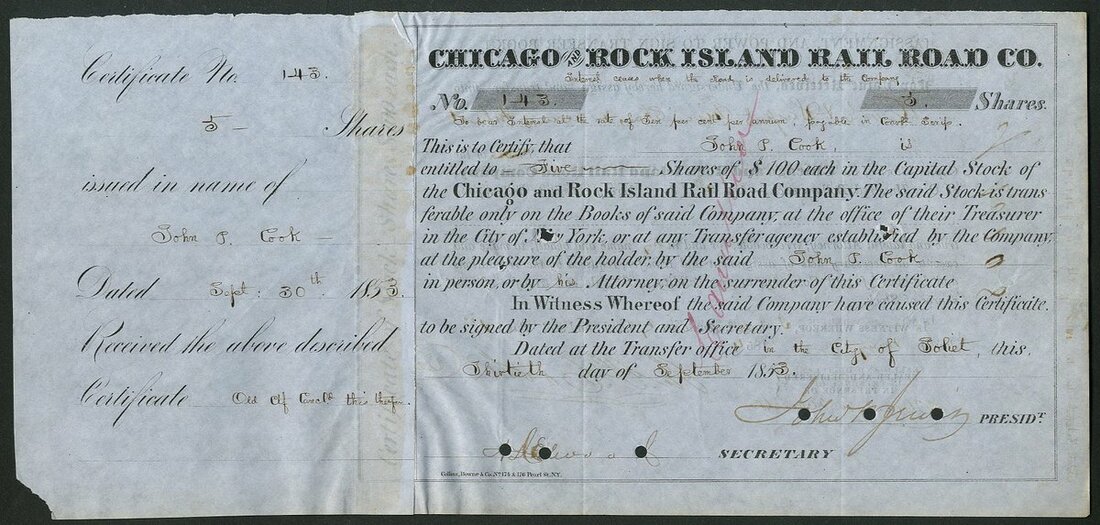 Certificate No. 143.
5 — Shares
issued in name of
John P. Cook —
Dated Sept: 30th 1853.
Received the above described
Certificate
CHICAGO AND ROCK ISLAND RAIL ROAD CO.
Interest ceases when the Road is delivered to the Company
No. 143. 5. Shares.
To bear Interest at the rate of Ten per cent per annum: payable in
This is to Certify, that John P. Cook, is
entitled to Five Shares of $100 each in the Capital Stock of
the Chicago and Rock Island Rail Road Company. The said Stock is trans
ferable only on the Books of said Company, at the office of their Treasurer
in the City of New York, or at any Transfer agency established by the Company,
at the pleasure of the holder, by the said John P. Cook —
in person, or by his Attorney, on the surrender of this Certificate
In Witness Whereof the said Company have caused this Certificate,
to be signed by the President and Secretary.
Dated at the Transfer office in the City of Joliet, this
Thirtieth day of September 1853.
PRESIDT
SECRETARY
Collins, Bowne & Co. No 174 & 176 Pearl St. N.Y.